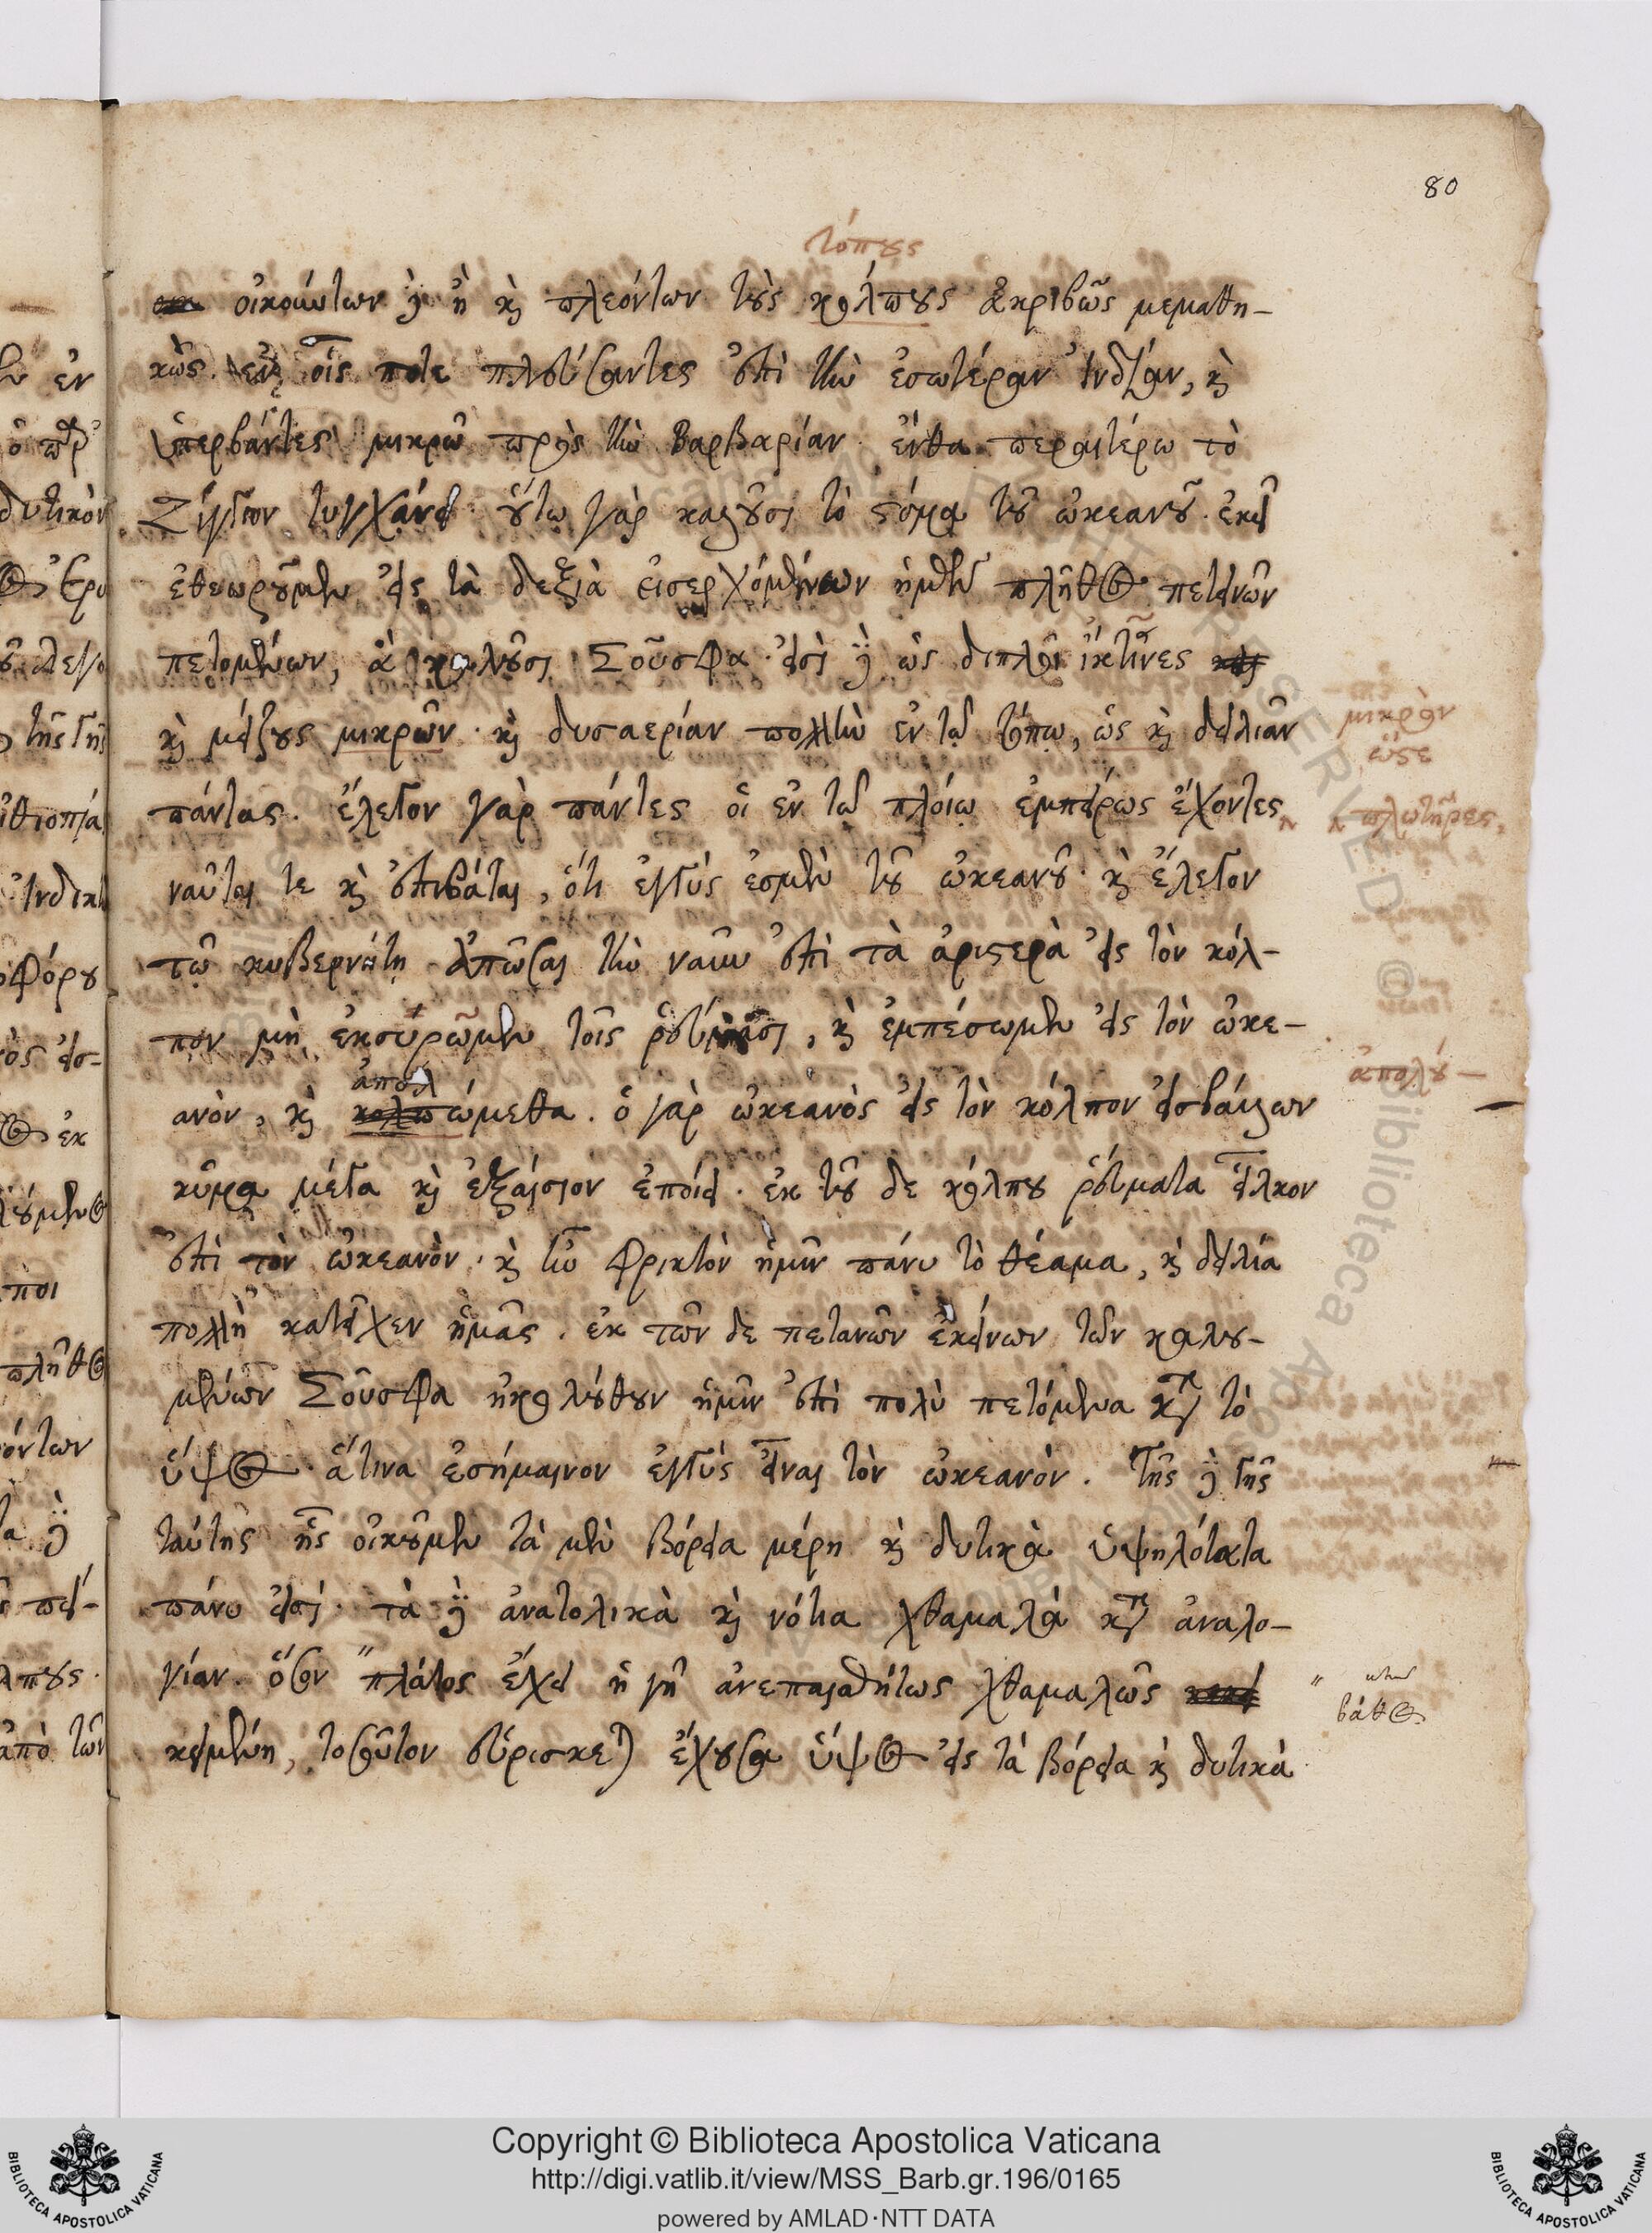 80
τόπους
οἰκούντων δὲ ἢ καὶ πλεόντων τοὺς κόλπους ἀκριβῶς μεμαθη-
κώς. ἐν οἷς ποτε πλεύσαντες ἐπὶ τὴν ἐσωτέραν Ἰνδίαν, καὶ
ὑπερβάντες μικρῶ πρὸς τὴν Βαρβαρίαν. ἔνθα περαιτέρω τὸ
Ζίγγιον τυγχάνει. οὕτω γὰρ καλοῦσι τὸ στόμα τοῦ ὠκεανοῦ. ἐκεῖ
ἐθεωροῦμεν εἰς τὰ δεξιὰ εἰσερχόμενων ἡμῶν πλῆθος πετεινῶν
πετομένων, ἃ καλοῦσι Σοῦσφα. εἰσὶ δὲ ὡς διπλοῖ ἰκτῖνες
καὶ μείζους μικρῶν. καὶ δυσαερίαν πολλὴν ἐν τῷ τόπῳ, ὡς καὶ δειλιᾶν
μικρὸν
ὥστε
πάντας. ἔλεγον γὰρ πάντες οἱ ἐν τῷ πλοίῳ ἐμπείρως ἔχοντες
πλωτῆρες
ναῦται τε καὶ ἐπιβάται, ὅτι ἐγγύς ἐσμὲν τοῦ ὠκεανοῦ. καὶ ἔλεγον
τῷ κυβερνήτῃ ἀπῶσαι τὴν ναῦν ἐπὶ τὰ ἀριστερὰ εἰς τὸν κόλ-
πον μὴ ἐκσυρῶμεν τοῖς ῥεύμασι, καὶ ἐμπέσωμεν εἰς τὸν ὠκε-
ἀπολού-
ἀπολ
ανὸν, καὶ κολπώμεθα. ὁ γὰρ ὠκεανὸς εἰς τὸν κόλπον εἰσβαίνων
κῦμα μέγα καὶ ἐξαίσιον ἐποίει. ἐκ τοῦ δε κόλπου ῥεύματα εἷλκον
ἐπὶ τὸν ὠκεανόν. καὶ ἦν φρικτὸν ἡμῖν πάνυ τὸ θέαμα, καὶ δειλία
πολλὴ κατεῖχεν ἡμᾶς. ἐκ τῶν δε πετεινῶν ἐκείνων τῶν καλου-
μένων Σοῦσφα ἠκολούθουν ἡμῖν ἐπὶ πολὺ πετόμενα κατὰ τὸ
ὕψος. ἅτινα ἐσήμαινον ἐγγὺς εἶναι τὸν ὠκεανόν. Τῆς δὲ γῆς
ταύτης ἧς οἰκοῦμεν τὰ μὲν βόρεια μέρη καὶ δυτικὰ ὑψηλότατα
πάνυ εἰσί. τὰ δὲ ἀνατολικὰ καὶ νότια χθαμαλὰ κατὰ ἀναλο-
γίαν. ὅσον " πλάτος ἔχει ἡ γῆ ἀνεπαισθήτως χθαμαλῶς
" βάθος
κειμένη, τοσοῦτον εὑρίσκεται ἔχουσα ὕψος εἰς τὰ βόρεια καὶ δυτικά.
Copyright © Biblioteca Apostolica Vaticana
http://digi.vatlib.it/view/MSS_Barb.gr.196/0165
powered by AMLAD·NTT DATA
BIBLIOTECA APOSTOLICA VATICANA
BIBLIOTECA APOSTOLICA VATICANA